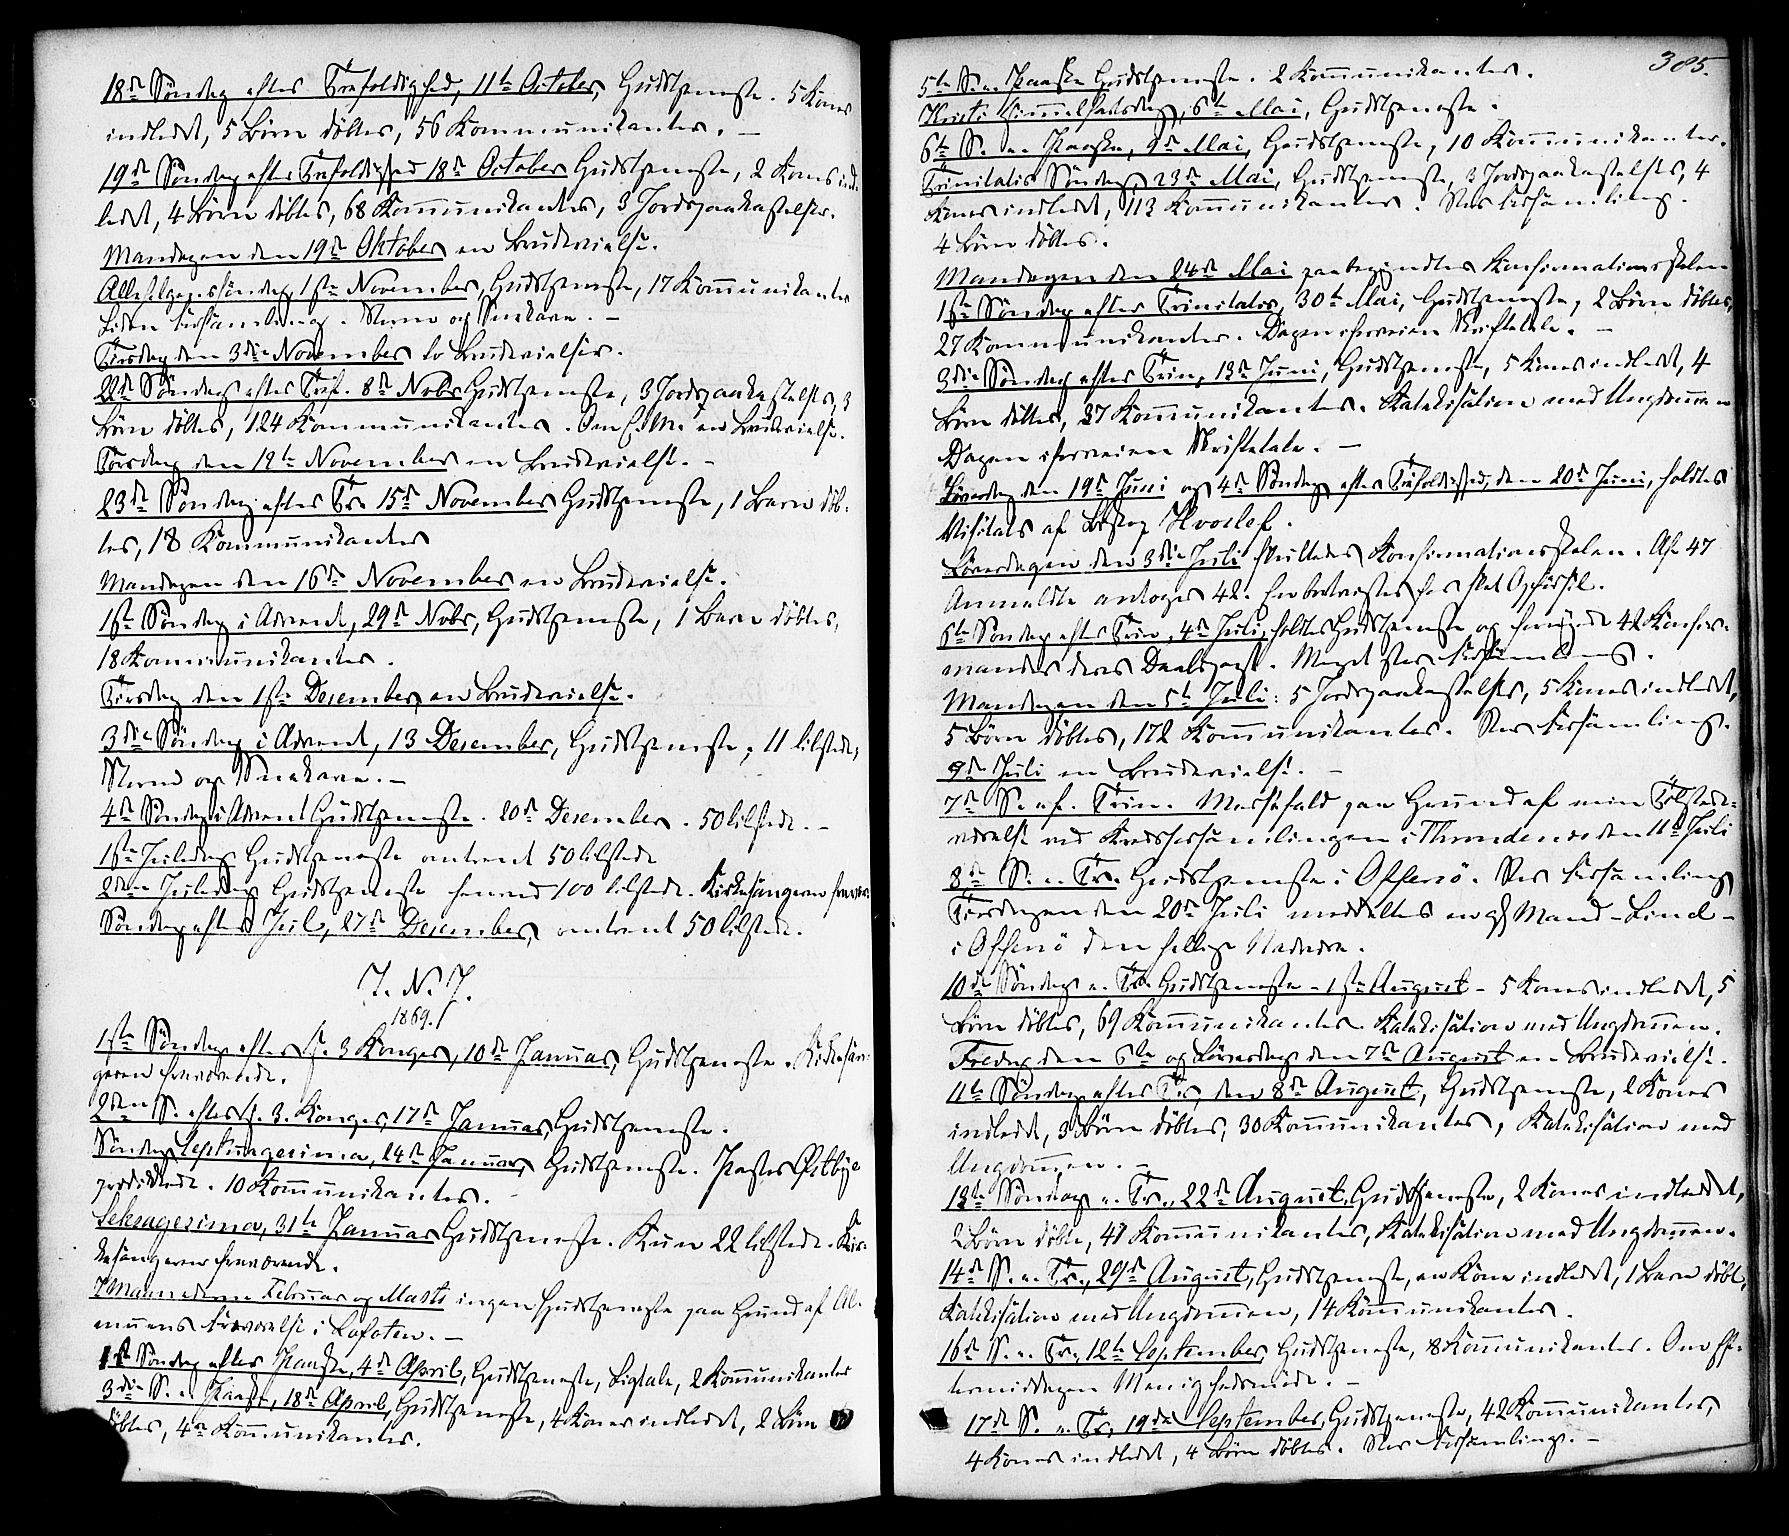 18de Søndag efter Trefoldighed, 11te October, Gudstjeneste. 5 Koner
indledt, 5 Børn døbtes, 56 Kommunikanter. —
19de Søndag efter Trefoldighed 18de October Gudstjeneste, 2 Koner ind-
ledt, 4 Børn døbtes, 68 Kommunikanter, 3 Jordpaakastelser.
Mandagen den 19de Oktober en Brudevielse.
Allehelgenssøndag, 1ste November, Gudstjeneste, 17 Kommunikanter
Liden Forsamling. Storm og Snekave. —
Tirsdag den 3die November to Brudevielser.
22de Søndag efter Tref. 8de Novbr Gudstjeneste, 3 Jordpaakastelser, 3
Børn døbtes, 124 Kommunikanter. Om E.M. en Brudevielse.
Torsdag den 12te November en Brudevielse. —
23de Søndag efter Tr. 15de November Gudstjeneste, 1 Barn døb-
tes, 18 Kommunikanter
Mandagen den 16de November en Brudevielse.
1ste Søndag i Advent, 29de Novbr, Gudstjeneste, 1 Barn døbtes,
18 Kommunikanter.
Tirsdag den 1ste Desember, en Brudevielse.
3die Søndag i Advent, 13 Desember, Gudstjeneste, 11 tilstede,
Storm og Snekave. —
4de Søndag i Advent Gudstjeneste. 20de Desember. 50 tilstede. —
1ste Juledag Gudstjeneste omtrent 50 tilstede
2den Juledag Gudstjeneste henved 100 tilstede. Kirkesangeren fravær.
Søndag efter Jul, 27de Desember, omtrent 50 tilstede.
J. N. J.
1869.
1ste Søndag efter H. 3 Konger, 10de Januar, Gudstjeneste. Kirkesan-
geren fraværende.
2den S. efter H. 3. Konger, 17de Januar, Gudstjeneste.
Søndag Septuagesima, 24de Januar, Gudstjeneste. Pastor Østbye
prædikede. 10 Kommunikanter.
Seksagesima, 31te Januar Gudstjeneste. Kun 22 tilstede. Kir-
kesangeren fraværende.
I Maanederne Februar og Marts ingen Gudstjeneste paa Grund af Al-
muens Fraværelse i Lofoten. —
1ste Søndag efter Paaske, 4de April, Gudstjeneste, Ligtale, 2 Kommunikanter
3die S. e. Paaske, 18de April, Gudstjeneste, 4 Koner indledt, 2 Børn
døbtes, 4 Kommunikanter.
385.
5te S. e. Paaske Gudstjeneste. 2 Kommunikanter.
Kristi Himmelfartsdag, 6te Mai, Gudstjeneste.
6te S. e. Paaske, 9de Mai, Gudstjeneste, 10 Kommunikanter.
Trinitatis Søndag, 23de Mai, Gudstjeneste, 3 Jordpaakastelser, 4
Koner indledt, 113 Kommunikanter. Stor Forsamling.
4 Børn døbtes.
Mandagen den 24de Mai paabegyndtes Konfirmationsskolen
1ste Søndag efter Trinitatis, 30te Mai, Gudstjeneste, 2 Børn døbtes,
27 Kommunikanter. Dagen iforveien Skriftetale. —
3die Søndag efter Trin, 13de Juni, Gudstjeneste, 5 Koner indledt, 4
Børn døbtes, 37 Kommunikanter. Katekisation med Ungdommen
Dagen iforveien Skriftetale. —
Løverdag den 19de Juni og 4de Søndag efter Trefoldighed, den 20de Juni, holdtes
Visitats af Biskop Hvoslef.
Løverdagen den 3die Juli sluttedes Konfirmationsskolen. Af 47
Anmeldte antoges 42.
6te Søndag efter Trin, 4de Juli, holdtes Gudstjeneste og 42 Konfir-
mander deres Daabspagt. Meget stor Forsamling.
Mandagen den 5te Juli: 5 Jordpaakastelser, 5 Koner indledt,
5 Børn døbtes, 172 Kommunikanter. Stor Forsamling.
9de Juli en Brudevielse. —
7de S. ef. Trin. Messefald paa Grund af min Tilstede-
værelse ved Kredsforsamlingen i Throndenes den 11te Juli
8de S. e. Tr. Gudstjeneste i Offersø. Stor Forsamling
Tirsdagen den 20de Juli meddeltes en Mand - Lind -
i Offersø den hellige Nadvere.
10de Søndag e. Tr. Gudstjeneste - 1ste August - 5 Koner indledt, 5
Børn døbtes, 69 Kommunikanter. Katekisation med Ungdommen.
Fredag den 6te og Løverdag den 7de August en Brudevielse.
11te Søndag efter Tr, den 8de August, Gudstjeneste, 2 Koner
indledt, 3 Børn døbtes, 30 Kommunikanter, Katekisation med
Ungdommen. —
13de Søndag e. Tr., 22de August, Gudstjeneste, 2 Koner indledt,
2 Børn døbte, 41 Kommunikanter, Katekisation med Ungdommen.
14de S. e. Tr., 29de August, Gudstjeneste, en Kone indledt, 1 Barn døbt,
Katekisation med Ungdommen, 14 Kommunikanter.
16de S. e. Tr, 12te September, Gudstjeneste, 8 Kommunikanter. Om Ef-
termiddagen Menighedsmøde. —
17de S. e. Tr, 19de September, Gudstjeneste, 42 Kommunikanter,
4 Koner indledt, 4 Børn døbtes. Stor Forsamling. —